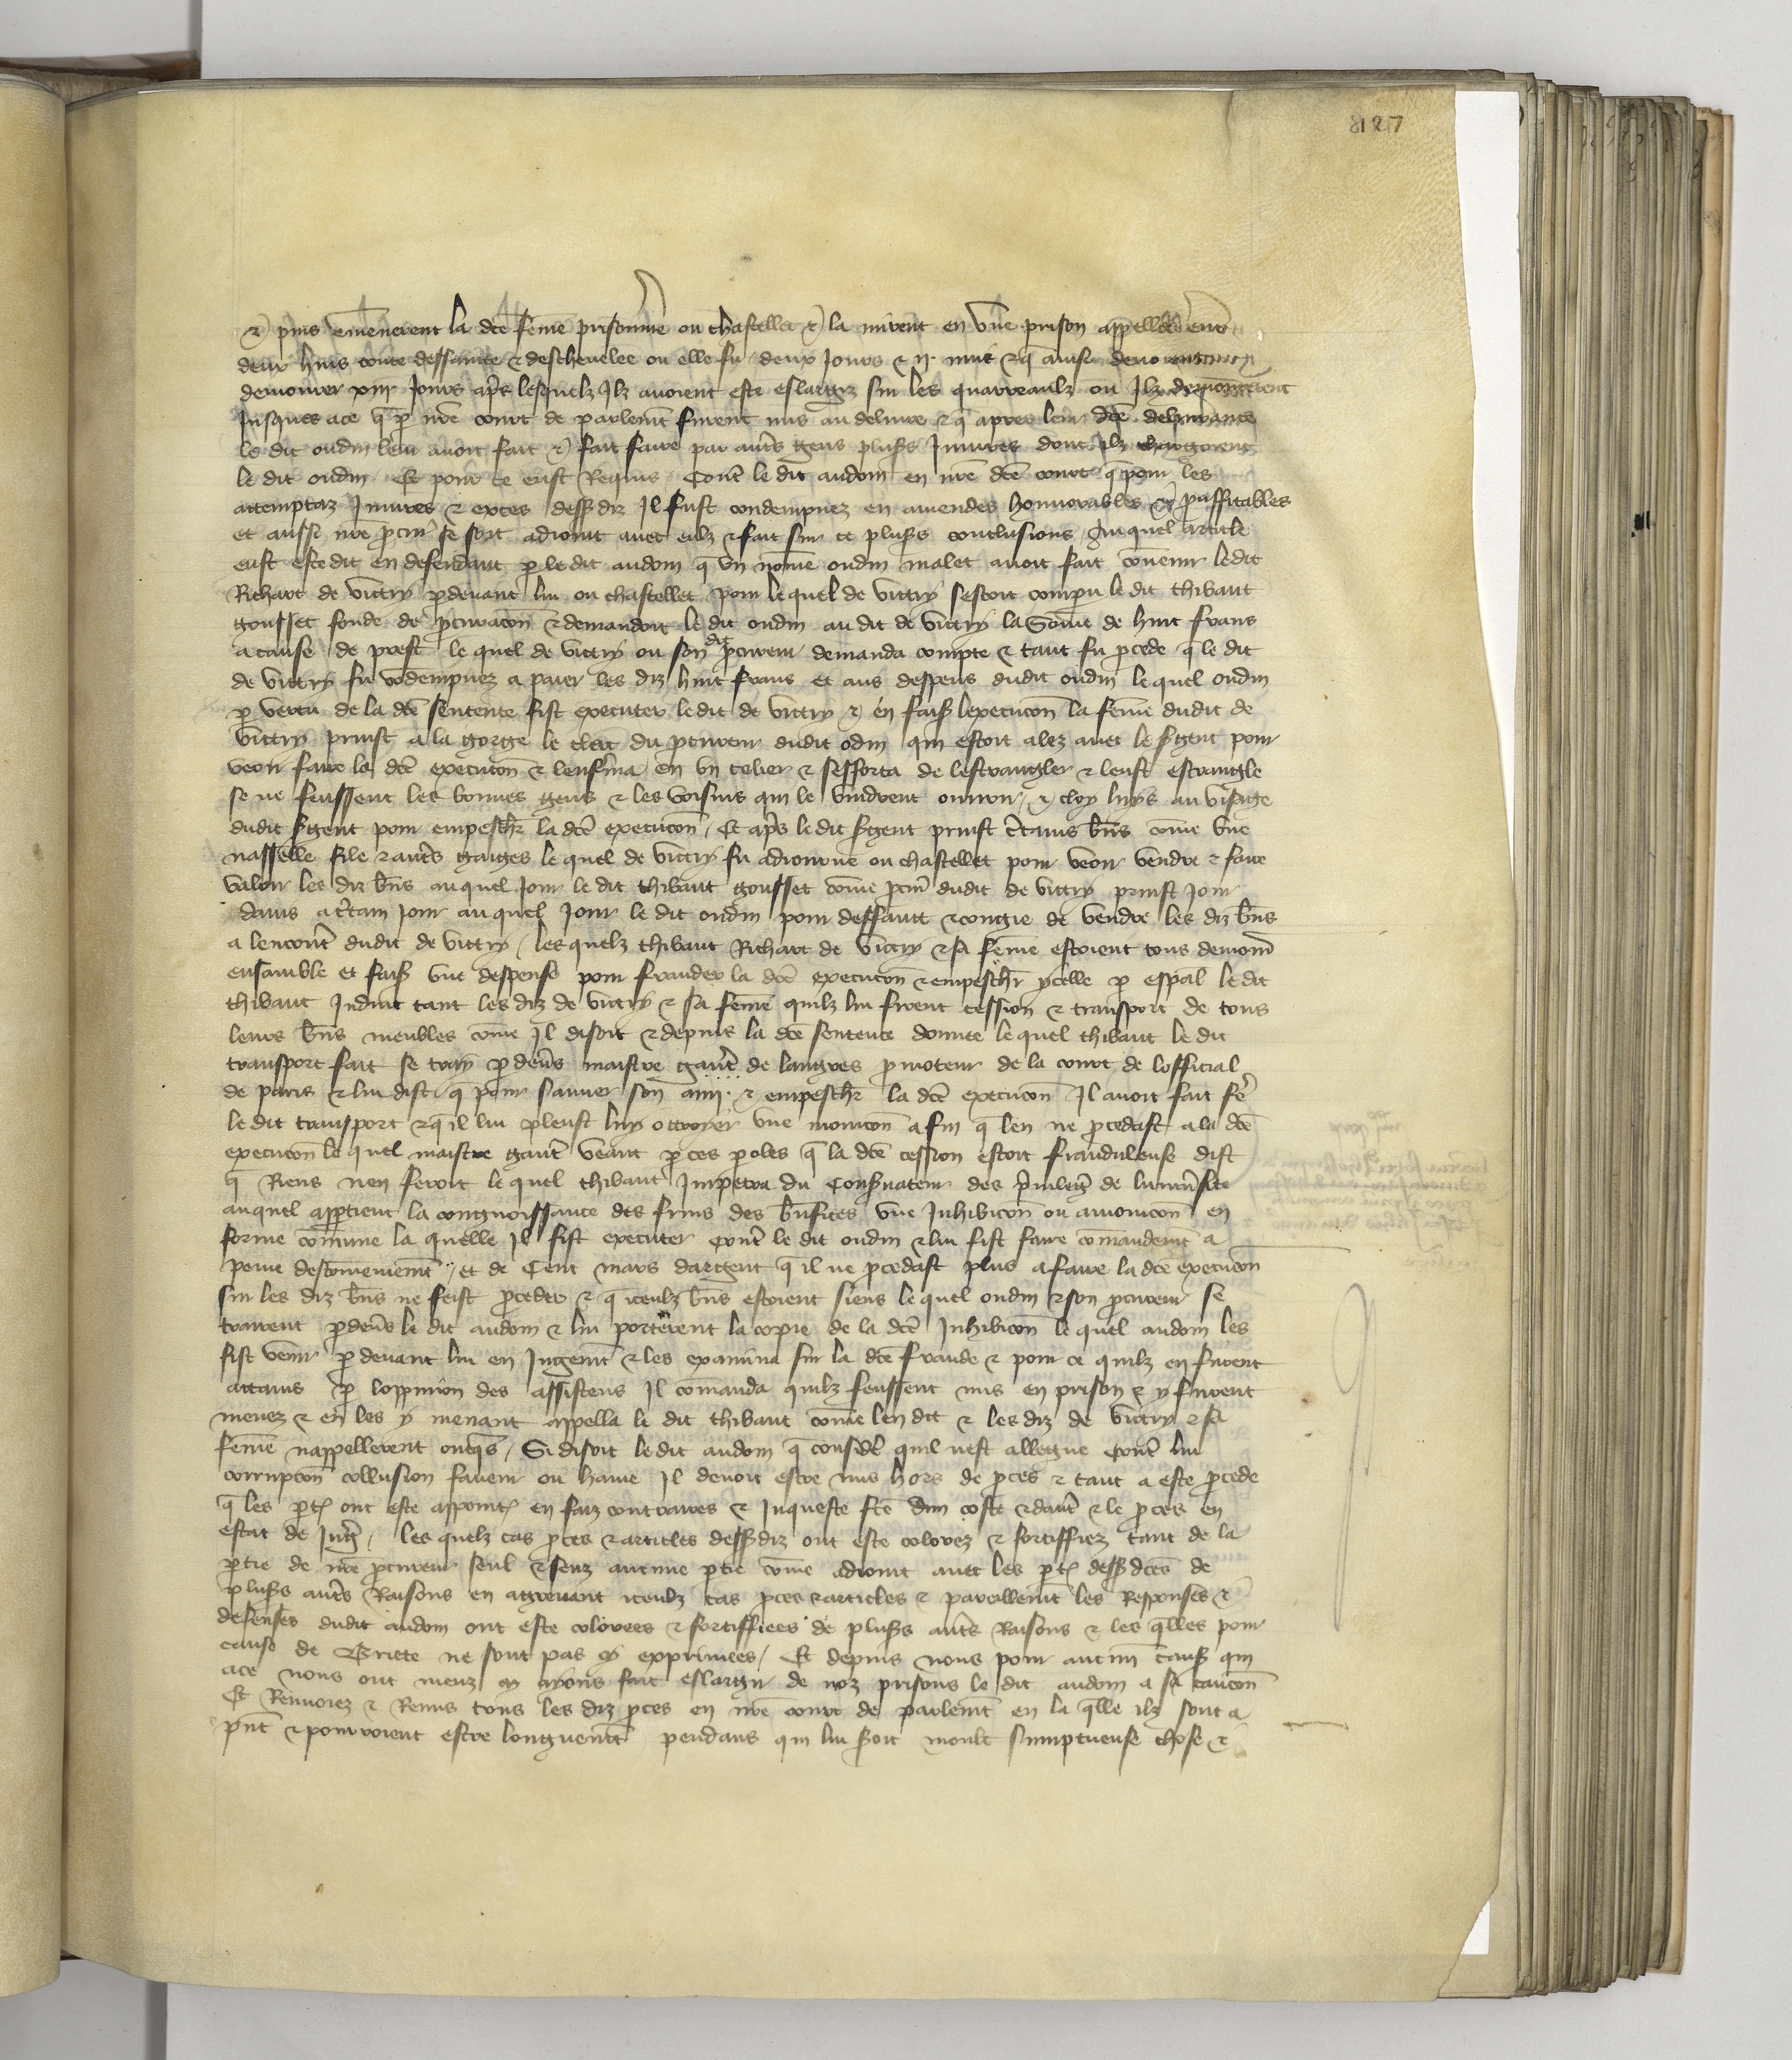 8127
⁊ puis emenerent la dce feme prisonnie ou chastellet ⁊ la mirent en vne prison appellee entre
deux huis toute dessainte ⁊ descheuelee ou elle fu deux Jours ⁊ ij. nuis ⁊ q ainsi
demourer xiiij Jours aps lesquelz Ilz auoient este eslargiz sur les quarreaulz ou Ilz demourerent
Jusques ace q p nre court de parlemt furent mis au deliure ⁊ q apres leur dce deliurance
le dit oudin leur auoit fait ⁊ fait faire par autrs gens pluss Iniures dont ilz chargoient
le dit oudin / Et pour ce eust Requis / Contre le dit audoin en nre dce court q pour les
attemptaz Iniures ⁊ exces dess diz Il fust condempnez en amendes honnorables ⁊ prouffitables
et aussi nre pcur se soit adioint auec eulz ⁊ fait sur ce pluss conclusions / Auquel article
eust este dit en defendant p le dit audoin q vn nome oudin malet auoit fait conuenir ledit
Richart de victry pdeuant lui ou chastellet pour lequel de victry sestoit comparu le dit thibaut
gousset fonde de pcuracon ⁊ demandoit le dit oudin au dit de victry la Some de huit frans
a cause de prest le quel de victry ou son dit pcureur demanda compte ⁊ tant fu pcede q le dit
de victry fu condempnez a paier les diz huit frans et aus despens dudit oudin lequel oudin
p vertu de la dce sentence fist executer ledit de victry ⁊ en fais lexecucon la feme dudit de
victry prinst a la gorge le clerc du pcureur dudit odin qui estoit alez auec le sgent pour
veoir faire la dce execucon ⁊ lenferma en vn celier ⁊ sefforca de lestrangler ⁊ leust estrangle
se ne feussent les bonnes gens ⁊ les voisins qui le vindrent ouurir / ⁊ cloy luys au visage
dudit sgent pour empeschr la dce execucon / Et aps le dit sgent prinst ctains bns come vne
nasselle file ⁊ autrs gaiges le quel de victry fu adiourne ou chastellet pour veoir vendre ⁊ faire
valoir les diz bns auquel Jour le dit thibaut gousset come pcur dudit de victry prinst Jour
dauis a ctain Jour auquel Jour le dit oudin pour deffault ⁊ congie de vendre les diz bns
a lencontre dudit de victry / les quelz thibaut Richart de victry ⁊ sa feme estoient tous demour
ensamble et fais vne despense pour frauder la dce execucon ⁊ empeschr ycelle p espal le dit
thibaut Induit tant les diz de victry ⁊ sa feme quilz lui firent cession ⁊ transport de tous
leurs bns meubles come Il disoit ⁊ depuis la dce sentence donnee le quel thibaut le dit
transport fait se tray pdeurs maistre gautr de langres pmoteur de la court de lofficial
de paris ⁊ lui dist / q pour sauuer son amy ⁊ empeschr la dce execucon Il auoit fait fer
le dit transport ⁊ q il lui pleust luy ottroyer vne monicon afin q len ne pcedast a la dce
execucon le quel maistre gautr veant p ces paroles q la dce cession estoit frauduleuse dist
q Riens nen feroit le quel thibaut Impetra du Consuateur des priuileges de luniusite
auquel apptient la congnoissance des fruis des bnfices vne Inhibicon ou amonicon en
forme comune la quelle Il fist executer contre le dit oudin ⁊ lui fist faire comandemt a
peine descomeniemt / et de Cent mars dargent q il ne pcedast plus a faire la dce execucon
sur les diz bns ne feist pceder ⁊ q iceulz bns estoient siens le quel oudin ⁊ son pcureur se
trairent pdeurs le dit audoin ⁊ lui porterent la copie de la dce Inhibicon le quel audoin les
fist venir pdeuant lui en Jugemt ⁊ les examina sur la dce fraude ⁊ pour ce quilz en furent
attains p loppinion des assistens Il comanda quilz feussent mis en prison ⁊ y furent
menez ⁊ en les y menant appella le dit thibaut come len dit ⁊ les diz de victry ⁊ sa
feme nappellerent onqs / Si disoit le dit audoin q considere quil nest allegue contre lui
corrupcon collusion faueur ou haine Il deuoit estre mis hors de pces ⁊ tant a este pcede
q les pties ont este appoint en faiz contraires ⁊ Inqueste fce dun coste ⁊ dautr ⁊ le pces en
estat de Jugr / les quelz cas pces ⁊ articles dessdiz ont este colorez ⁊ fortiffiez tant de la
ptie de nre pcureur seul ⁊ senz aucune ptie come adioint auec les pties dess dces de
pluss autrs Raisons en agreuant iceulz cas pces ⁊ articles ⁊ pareillemt les Responses ⁊
defenses dudit audoin ont este colorees ⁊ fortiffiees de pluss autrs Raisons ⁊ les qlles pour
cause de Briete ne sont pas cy exprimees / Et depuis nous pour aucun causs qui
ace nous ont meuz auons fait eslargir de noz prisons le dit audoin a sa caucon
Et Renuoiez ⁊ Remis tous les diz pces en nre court de parlemt en la qlle ilz sont a
pnt ⁊ pourroient estre longuemt pendans qui lui soit moult sumptueuse chose ⁊